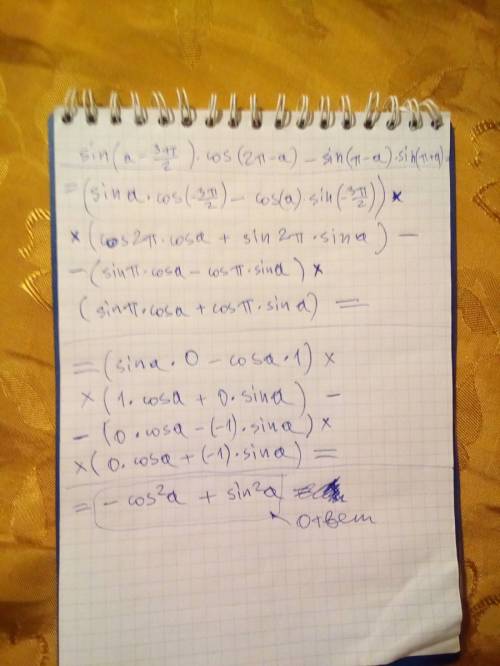 sin(a - 3π/2) · cos(2π-a) - sin(π-a) · sin(π+a) =
= (sin a · cos(-3π/2) - cos(a) · sin(-3π/2)) ×
× (cos2π · cosa + sin 2π · sin a) -
- (sinπ · cosa - cosπ · sina) ×
(sinπ · cosa + cosπ · sin a) =
= (sina · 0 - cosa · 1) ×
× (1 · cosa + 0 · sina) -
- (0 · cosa - (-1) · sina) ×
× (0 · cosa + (-1) · sina) =
= - cos²a + sin²a
ответ